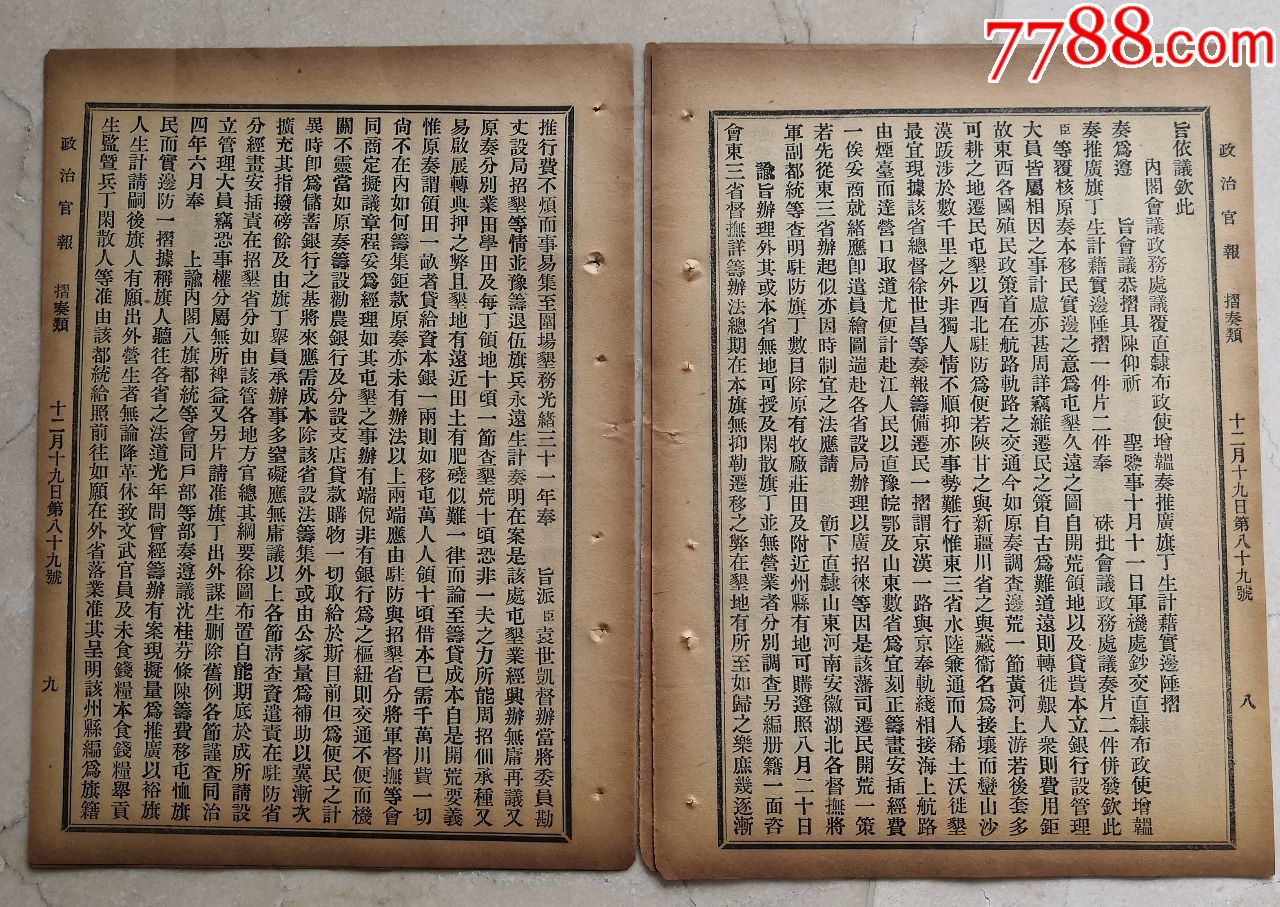 7788.com
政治官報 摺奏類 十二月十九日第八十九號 八
旨依議欽此
內閣會議政務處議覆直隸布政使增韞奏推廣旗丁生計藉實邊陲摺
奏為遵 旨會議恭摺具陳仰祈 聖鑒事十月十一日軍機處鈔交直隸布政使增韞
奏推廣旗丁生計藉實邊陲摺一件片二件奉 硃批會議政務處議奏片二件併發欽此
臣等覆核原奏本移民實邊之意為屯墾久遠之圖自開荒領地以及貸貲本立銀行設管理
大員皆屬相因之事計慮亦甚周詳竊維遷民之策自古為難道遠則轉徙艱人衆則費用鉅
故東西各國殖民政策首在航路軌路之交通今如原奏調查邊荒一節黃河上游若後套多
可耕之地遷民屯墾以西北駐防為便若陝甘之與新疆川省之與藏衞名為接壤而蠻山沙
漠跋涉於數千里之外非獨人情不順抑亦事勢難行惟東三省水陸兼通而人稀土沃徙墾
最宜現據該省總督徐世昌等奏報籌備遷民一摺謂京漢一路與京奉軌綫相接海上航路
由煙臺而達營口取道尤便計赴江人民以直豫皖鄂及山東數省為宜刻正籌畫安插經費
一俟妥商就緒應卽遣員繪圖遄赴各省設局辦理以廣招徠等因是該藩司遷民開荒一策
若先從東三省辦起似亦因時制宜之法應請 飭下直隸山東河南安徽湖北各督撫將
軍副都統等查明駐防旗丁數目除原有牧廠莊田及附近州縣有地可購遵照八月二十日
諭旨辦理外其或本省無地可授及閑散旗丁並無營業者分別調查另編册籍一面咨
會東三省督撫詳籌辦法總期在本旗無抑勒遷移之弊在墾地有所至如歸之樂庶幾逐漸
推行費不煩而事易集至圍場墾務光緒三十一年奉 旨派臣袁世凱督辦當將委員勘
丈設局招墾等情並豫籌退伍旗兵永遠生計奏明在案是該處屯墾業經興辦無庸再議又
原奏分別業田學田及每丁領地十頃一節查墾荒十頃恐非一夫之力所能周招佃承種又
易啟展轉典押之弊且墾地有遠近田土有肥磽似難一律而論至籌貸成本自是開荒要義
惟原奏謂領田一畝者貸給資本銀一兩則如移屯萬人人領十頃借本已需千萬川貲一切
尙不在內如何籌集鉅款原奏亦未有辦法以上兩端應由駐防與招墾省分將軍督撫等會
同商定擬議章程妥為經理如其屯墾之事辦有端倪非有銀行為之樞紐則交通不便而機
關不靈當如原奏籌設勸農銀行及分設支店貸款購物一切取給於斯目前但為便民之計
異時卽為儲蓄銀行之基將來應需成本除該省設法籌集外或由公家量為補助以冀漸次
擴充其指撥磅餘及由旗丁舉員承辦事多窒礙應無庸議以上各節淸查資遣責在駐防省
分經畫安插責在招墾省分如由該管各地方官總其綱要徐圖布置自能期底於成所請設
立管理大員竊恐事權分屬無所裨益又另片請准旗丁出外謀生删除舊例各節謹查同治
四年六月奉 上諭內閣八旗都統等會同戶部等部奏遵議沈桂芬條陳籌費移屯恤旗
民而實邊防一摺據稱旗人聽往各省之法道光年間曾經籌辦有案現擬量為推廣以裕旗
人生計請嗣後旗人有願出外營生者無論降革休致文武官員及未食錢糧本食錢糧舉貢
生監曁兵丁閑散人等准由該都統給照前往如願在外省落業准其呈明該州縣編為旗籍
政治官報 摺奏類 十二月十九日第八十九號 九